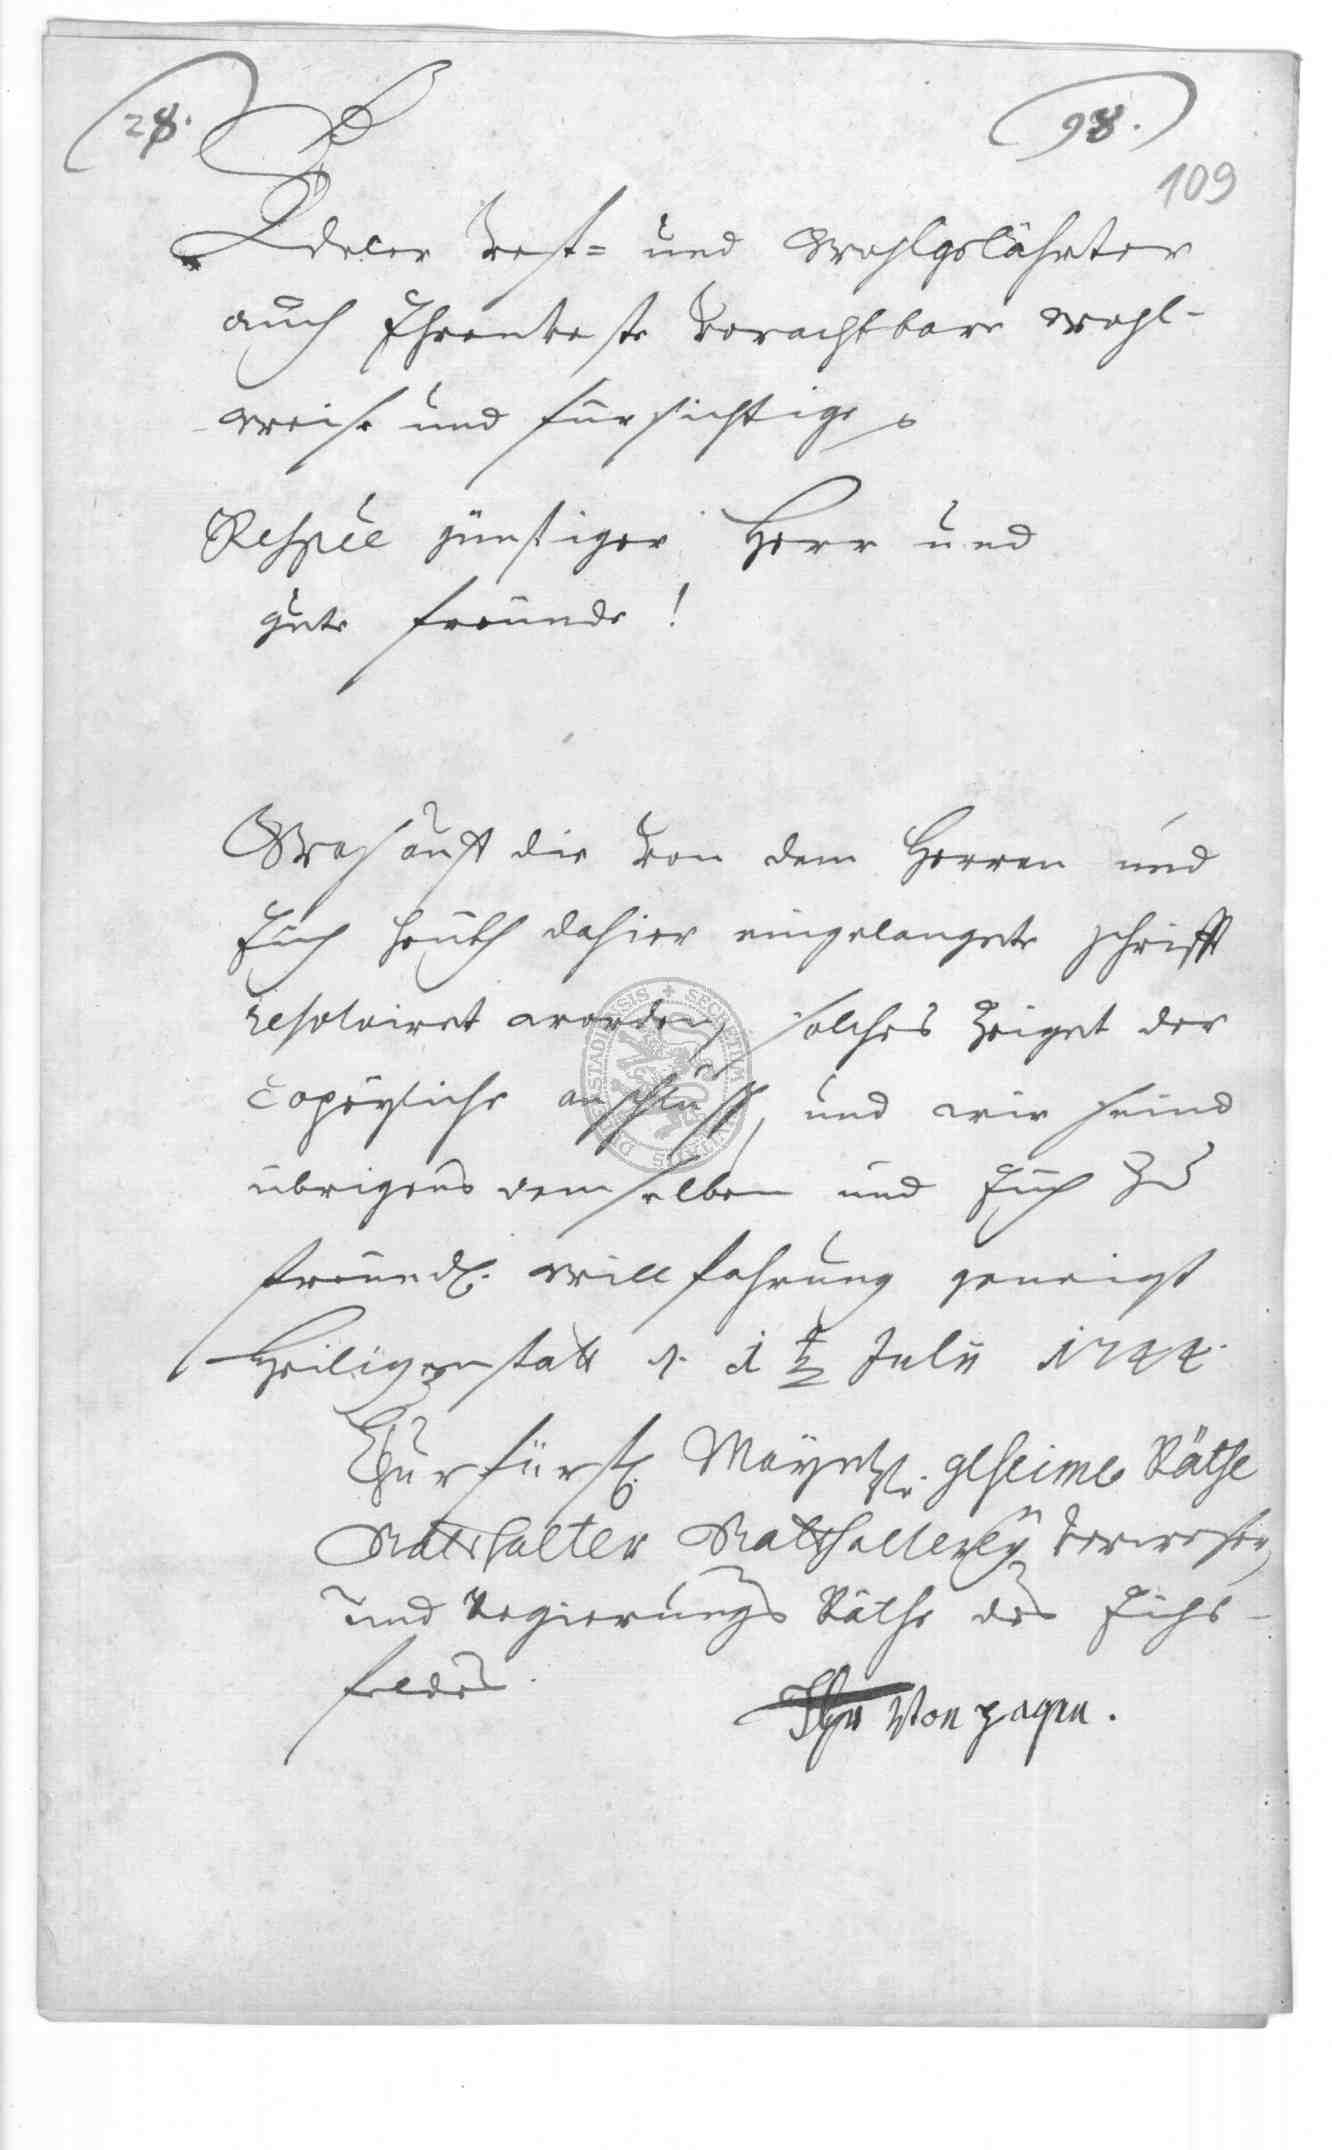 28.
98.
109
Edeler Vest= und Wohlgelährter
auch Ehrenveste Vorachtbare wohl-
weise und fürsichtige
Respée günstiger Herr und
gute Freunde!
Waß auff die von dem Herren und
Euch heuth dahier eingelangete schrifft
resolviret worden, solches zeiget der
copeyliche anschluß, und wir seind
übrigens demselben und Euch zu
freundl. willfahrung geneigt
Heiligenstatt d. Julii 1744.
Churfürstl. Mayntz. geheime Räthe
Statthalter Statthalterey Verweser
und Regierungs Räthe des Eichs-
feldes.
von Hagen.